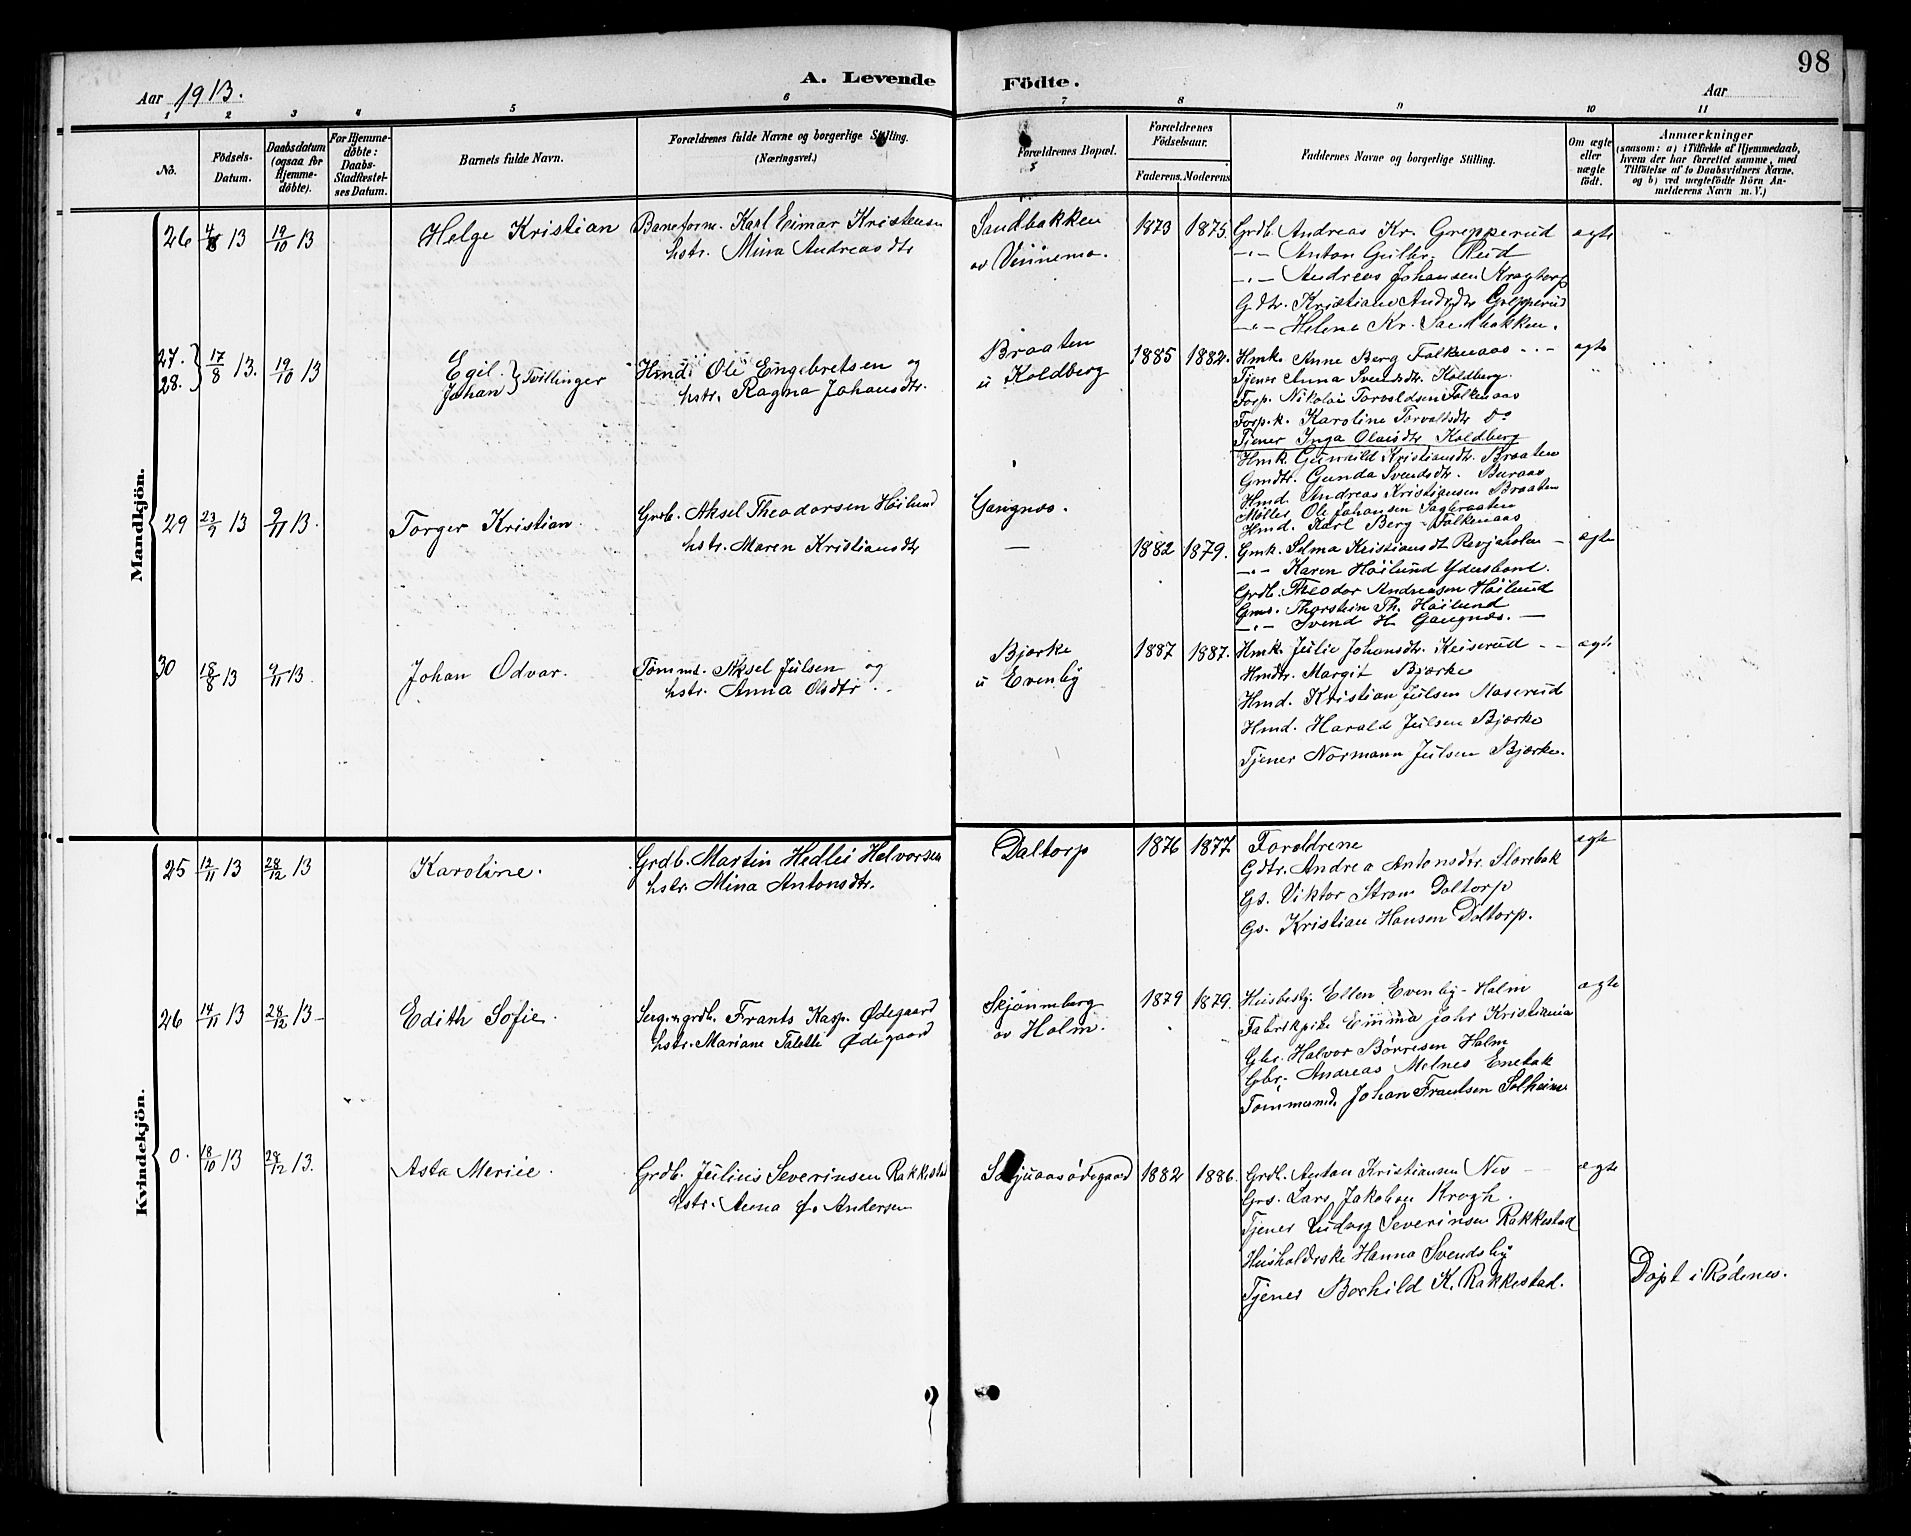 98
A. Levende Födte.
Aar 1913.
Aar
1 2 3 4 5 6 7 8 9 10 11
No.
Födsels-Datum.
Daabsdatum (ogsaa for Hjemmedöbte).
For Hjemmedöbte: Daabs-Stadfæstelses Datum.
Barnets fulde Navn.
Forældrenes fulde Navne og borgerlige Stilling. (Næringsvei.)
Forældrenes Bopæl.
Forældrenes Födselsaar.
Faderens. Moderens
Faddernes Navne og borgerlige Stilling.
Om ægte eller uægte födt.
Anmærkninger
(saasom: a) i Tilfælde af Hjemmedaab, hvem der har forrettet samme, med Tilföielse af to Daabsvidners Navne, og b) ved uægtefödte Börn Anmelderens Navn m. V.)
Mandkjön.
26 4/8 13 19/10 13 Helge Kristian
Baneform. Karl Eimar Kristensen
hstr. Mina Andreasdtr
Sandbakken
av Vinnemo.
1873 1875.
Grdb. Andreas Kr. Grepperud
-"- Anton Gulbr. Rud
-"- Andreas Johansen Krogtorp
Gdtr. Kristiane Andrdtr Grepperud
-"- Helene Kr. Sandbakken.
ægte
27. 28. } 17/8 13. 19/10 13
Egil.
Johan } Tvillinger
Hmd. Ole Engebretsen og
hstr. Ragna Johansdtr.
Braaten
u Koldberg
1885 1882.
Hmk. Anne Berg Falkenaas
Tjener Anna Svendsdtr. Koldberg.
Forp. Nikolai Torvaldsen Falkenaas
Forp.k. Karoline Torvaldsdtr Do
Tjener Inga Olaisdtr Koldberg
Hmk. Gunvild Kristiansdtr. Braaten
Gmdtr. Gunda Svendsdtr. Buraas
Hmd. Andreas Kristiansen Braaten
Møller Ole Johansen Sagbraaten
Hmd. Karl Berg - Falkenaas
ægte
29 23/9 13 9/11 13. Torger Kristian.
Grdb. Aksel Theodorsen Høilund
hstr. Maren Kristiansdtr
Gangnæs.
—
1882 1879.
Gmk. Selma Kristiansdt Revjaholen -
-"- Karen Høilund Ydersbond.
Grdb. Theodor Andreasen Høilund
Gms. Thorstein Th. Høilund
-"- Svend H. Gangnæs. —
ægte
30 18/8 13 9/11 13. Johan Odvar.
Tømmd. Aksel Julsen og
hstr. Anna Olsdtr.
Bjørke
u Evenby
1887 1887.
Hmk. Julie Johansdtr. Keiserud - -
Hmdtr. Margit Bjørke
Hmd. Kristian Julsen Maserud
Hmd. Harald Julsen Bjørke
Tjener Normann Julsen Bjørke.
ægte
Kvindekjön.
25 12/11 13 28/12 13 Karoline.
Grdb. Martin Hedlei Halvorsen
hstr. Mina Antonsdtr.
Daltorp
1876 1877
Foraldrene
Gdtr. Andrea Antonsdtr. Storebak
Gs. Viktor Strøm Daltorp
Gs. Kristian Hansen Daltorp.
ægte
26 14/11 13 28/12 13 - Edith Sofie.
grdb. Frants Kasp. Ødegaard
hstr. Mariane Talette Ødegaard
Skjønneberg
av Holm.
1879 1879.
Husbesty. Ellen Evenby - Holm
Fabrikpike Emma Johr Kristiania
Gbr. Halvor Børresen Holm
Gbr. Andreas Melnes Enebak
Tommermd. Johan Frantsen Solheim
ægte
0. 18/10 13 28/12 13. Asta Meriie.
Grdb. Julius Severinsen Rakkestad
hstr. Anna f. Andersen
1882 1886.
Grdb. Anton Kristiansen Nes
Grs. Lars Jakobsen Krogh.
Tjener Ludvig Severinsen Rakkestad
Husholderske Hanna Svendsby
Tjener Borhild K. Rakkestad.
ægte
Døpt i Rødenes.